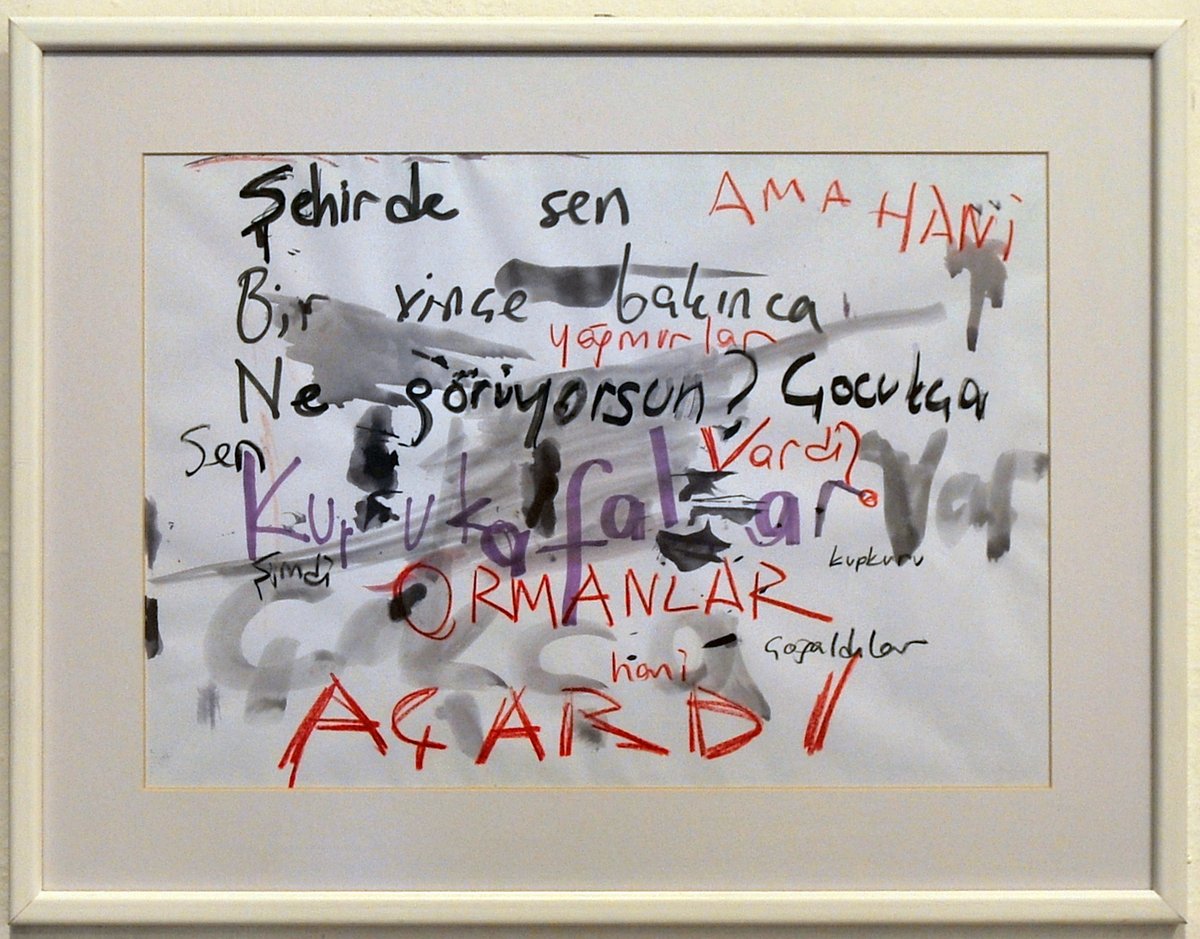 Şehirde sen AMA HANi
Bir vinçe bakınca
yağmurlar
Ne görüyorsun? Çocukça
Sen vardı?
Kuru kafalar var
şimdi kupkuru
ORMANLAR
Gökçe çoğaldılar
hani
AÇARDI